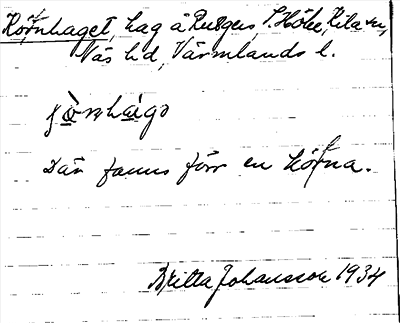 Körnhaget, hag å Rutgers, S. Höke, Kila sn,
Näs hd, Värmlands l.
Där fanns förr en körna.
Britta Johansson 1934